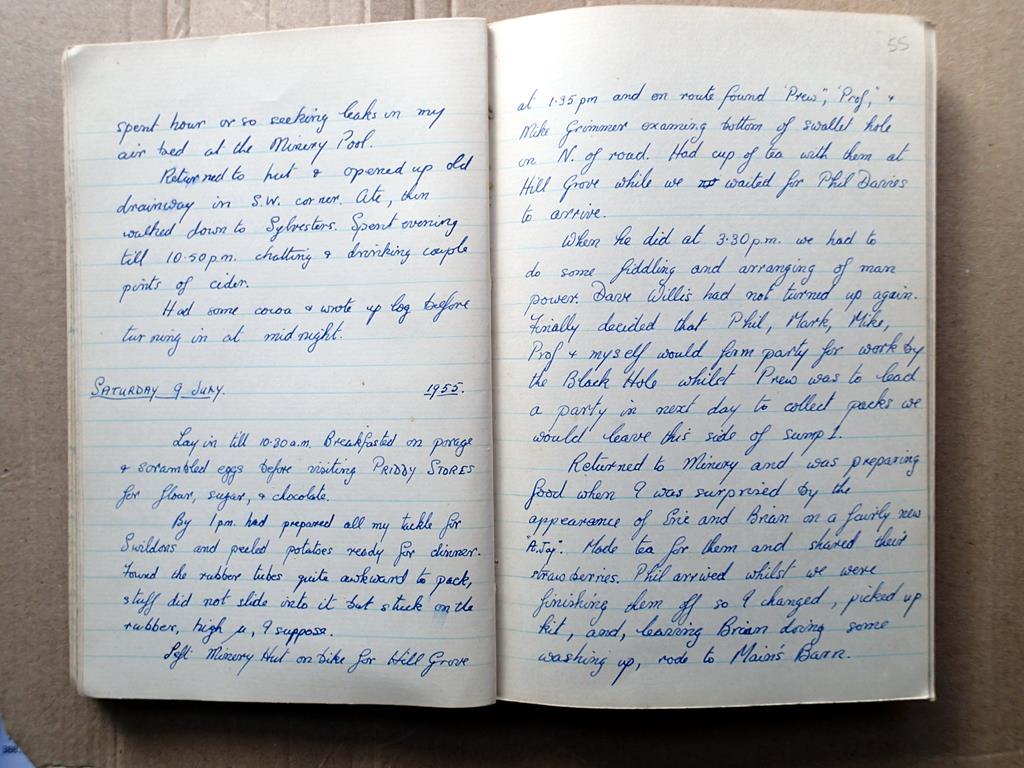 spent hour or so seeking leaks in my
air bed at the Minery Pool.
Returned to hut & opened up old
drainway in S.W. corner. Ate, then
walked down to Sylvesters. Spent evening
till 10.50 p.m. chatting & drinking couple
pints of cider.
Had some cocoa & wrote up log before
turning in at midnight.
SATURDAY 9 JULY. 1955.
Lay in till 10.30 a.m. Breakfasted on porage
& scrambled eggs before visiting PRIDDY STORES
for flour, sugar, & chocolate.
By 1 pm. had prepared all my tackle for
Swildons and peeled potatoes ready for dinner.
Found the rubber tubes quite awkward to pack,
stuff did not slide into it but stuck on the
rubber, high μ, I suppose.
Left Minery Hut on bike for Hill Grove
55
at 1.35 pm and en route found "Prew", "Prof", &
Mike Grimmer examing bottom of swallet hole
on N. of road. Had cup of tea with them at
Hill Grove while we waited for Phil Davies
to arrive.
When he did at 3.30 p.m. we had to
do some fiddling and arranging of man
power. Dave Willis had not turned up again.
Finally decided that Phil, Mark, Mike,
Prof & myself would form party for work by
the Black Hole whilst Prew was to lead
a party in next day to collect packs we
would leave this side of sump 1.
Returned to Minery and was preparing
food when I was surprized by the
appearance of Eric and Brian on a fairly new
"A.Jay". Made tea for them and shared their
strawberries. Phil arrived whilst we were
finishing them off so I changed, picked up
kit, and, leaving Brian doing some
washing up, rode to Main's Barn.